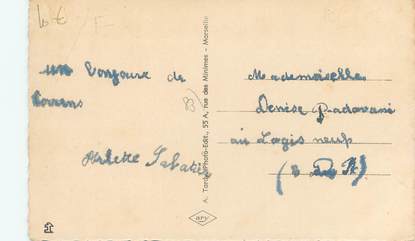 un bonjour de
Arlette Sabatier
A. Tardy, Photo-Edit., 55 A, rue des Minimes - Marseille
ary
Mademoiselle
Denise Padovani
au Logis neuf